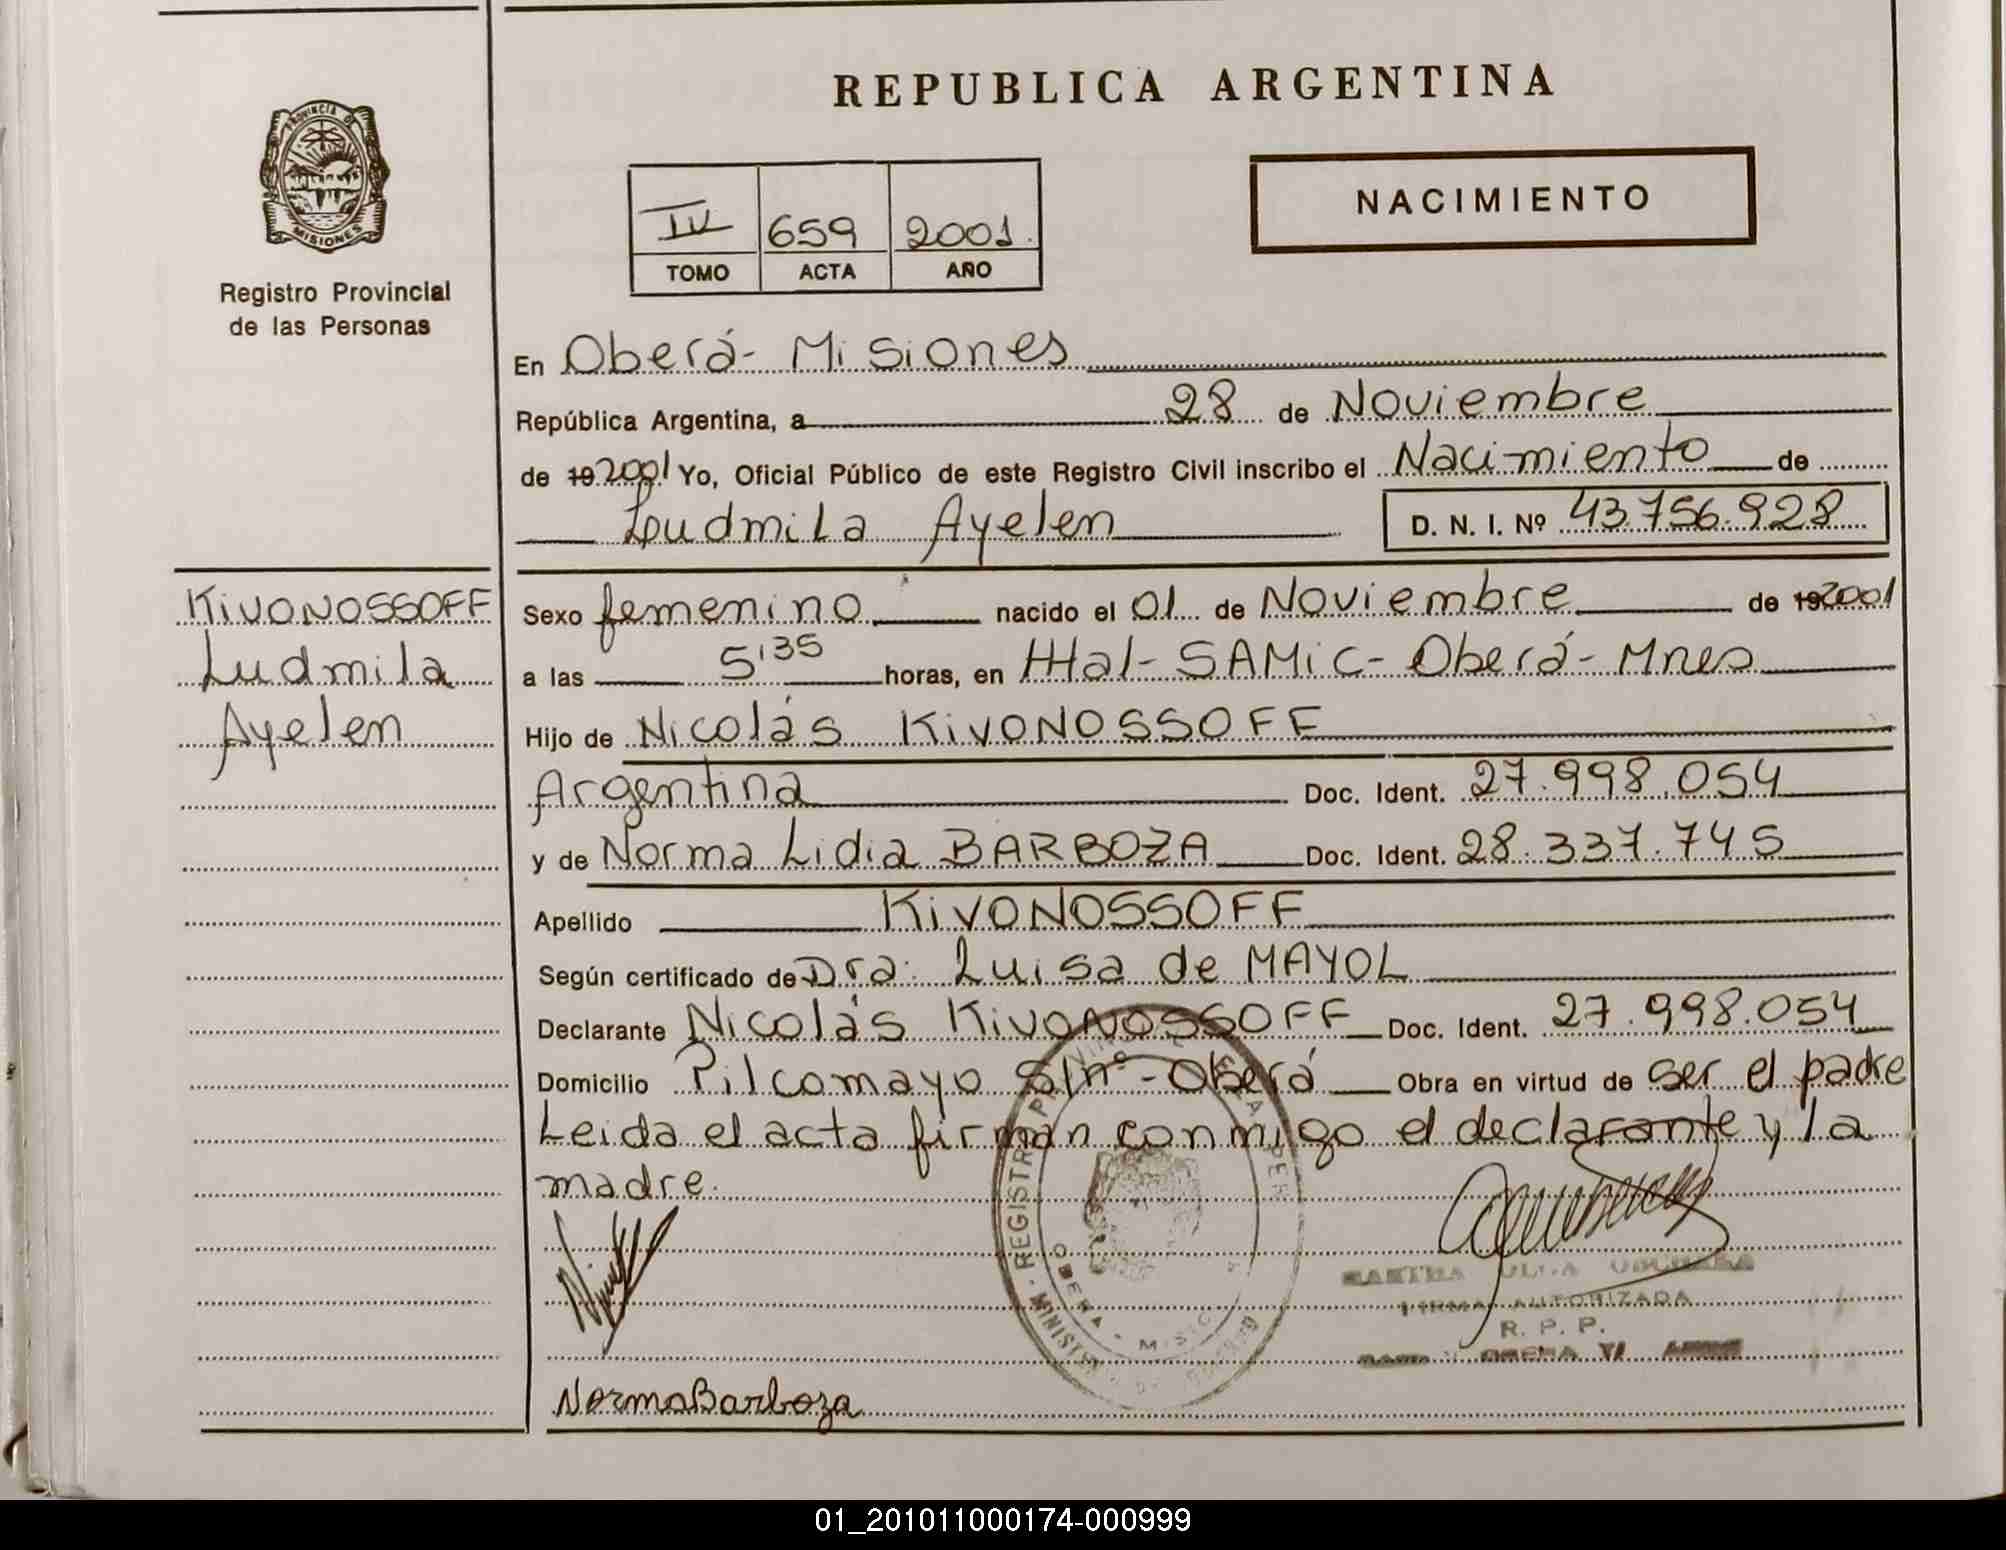 REPUBLICA ARGENTINA
PROVINCIA DE
MISIONES
Registro Provincial
de las Personas
IV 659 2001
TOMO ACTA AÑO
NACIMIENTO
En Oberá- Misiones
República Argentina, a 28 de Noviembre
de 19 2001 Yo, Oficial Público de este Registro Civil inscribo el Nacimiento de
Ludmila Ayelen D. N. I. Nº 43.756.928
KIVONOSSOFF
Ludmila
Ayelen
Sexo femenino nacido el 01 de Noviembre de 19 2001
a las 5'35 horas, en Htal- SAMiC- Oberá- Mnes
Hijo de Nicolás KIVONOSSOFF
Argentina Doc. Ident. 27.998.054
y de Norma Lidia BARBOZA Doc. Ident. 28.337.745
Apellido KIVONOSSOFF
Según certificado de Dra: Luisa de MAYOL
Declarante Nicolás KIVONOSSOFF Doc. Ident. 27.998.054
Domicilio Pilcomayo S/nº- Oberá Obra en virtud de ser el padre
Leida el acta firman conmigo el declarante y la
madre.
FIRMA AUTORIZADA
R. P. P.
NormaBarboza
01_201011000174-000999